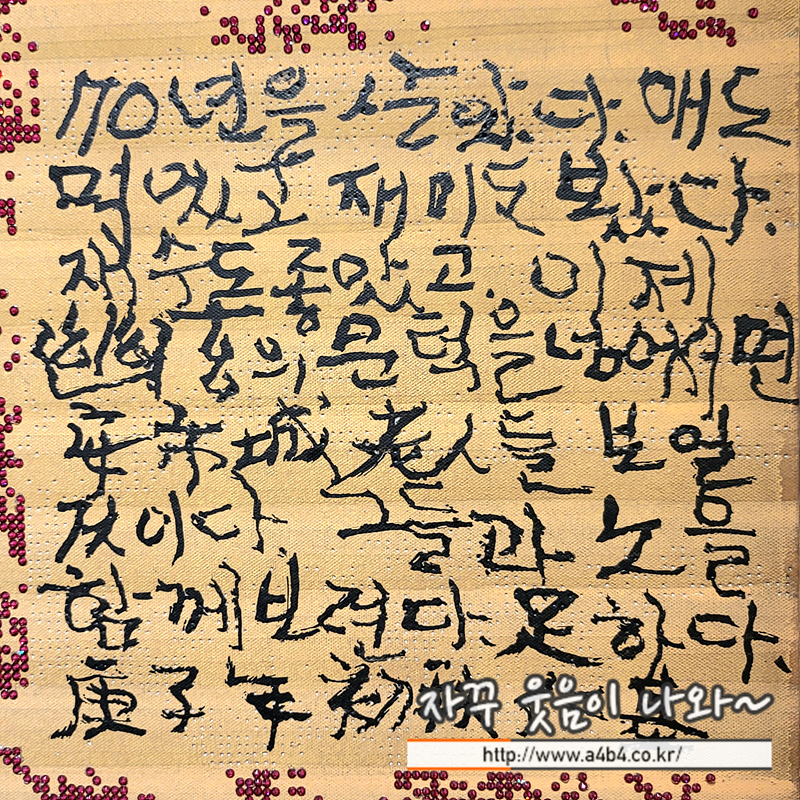 70년을 살았다. 매도
먹었고 재미도 보았다.
재수도 좋았고. 이제
의 문턱을 넘어서면
安市城 老人들 보일
것이다 그들과 노을
함께 보련다. 足하다.
庚子年 初秋
자꾸 웃음이 나와~
http://www.a4b4.co.kr/